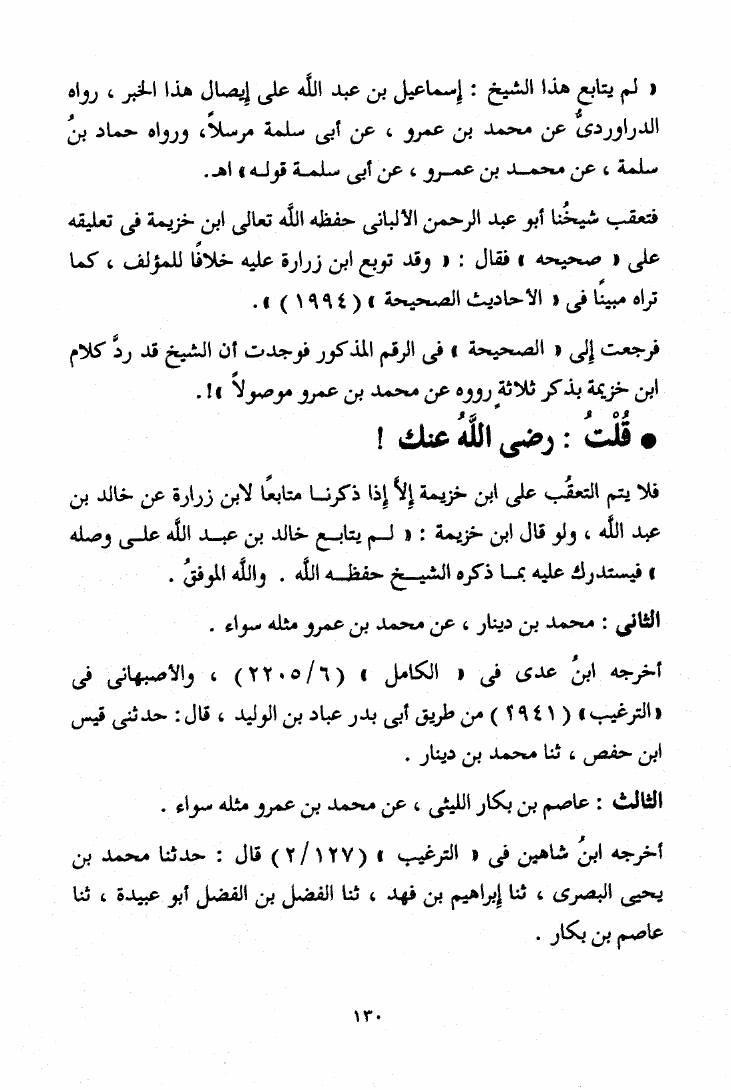 « لم يتابع هذا الشيخ : إسماعيل بن عبد اللَّه على إيصال هذا الخبر ، رواه
الدراوردىُّ عن محمد بن عمرو ، عن أبى سلمة مرسلاً، ورواه حماد بنُ
سلمة ، عن محمـد بن عمـرو ، عن أبى سلمة قوله» اهـ.
فتعقب شيخُنا أبو عبد الرحمن الألبانى حفظه اللَّه تعالى ابن خزيمة فى تعليقه
على « صحيحه » فقال : « وقد توبع ابن زرارة عليه خلافًا للمؤلف ، كما
تراه مبينًا فى « الأحاديث الصحيحة » (١٩٩٤) ».
فرجعت إلى « الصحيحة » فى الرقم المذكور فوجدت أن الشيخ قد ردَّ كلام
ابن خزيمة بذكر ثلاثةٍ رووه عن محمد بن عمرو موصولاً »!.
● قُلْتُ : رضى اللَّهُ عنك !
فلا يتم التعقُّب على ابن خزيمة إلاَّ إذا ذكرنـا متابعًا لابن زرارة عن خالد بن
عبد الله ، ولو قال ابن خزيمة : « لـم يتابـع خالد بن عبـد الله علـى وصله
» فيستدرك عليه بمـا ذكره الشيـخ حفظـه الله . والله الموفقُ .
الثانى : محمد بن دينار ، عن محمد بن عمرو مثله سواء .
أخرجه ابنُ عدى فى « الكامل » (٢٢٠٥/٦) ، والأصبهانى فى
«الترغيب» (٢٩٤١) من طريق أبى بدر عباد بن الوليد ، قال : حدثنى قيس
ابن حفص ، ثنا محمد بن دينار .
الثالث : عاصم بن بكار الليثى ، عن محمد بن عمرو مثله سواء .
أخرجه ابنُ شاهين فى « الترغيب » (٢/١٢٧) قال : حدثنا محمد بن
يحيى البصرى ، ثنا إبراهيم بن فهد ، ثنا الفضل بن الفضل أبو عبيدة ، ثنا
عاصم بن بكار .
١٣٠